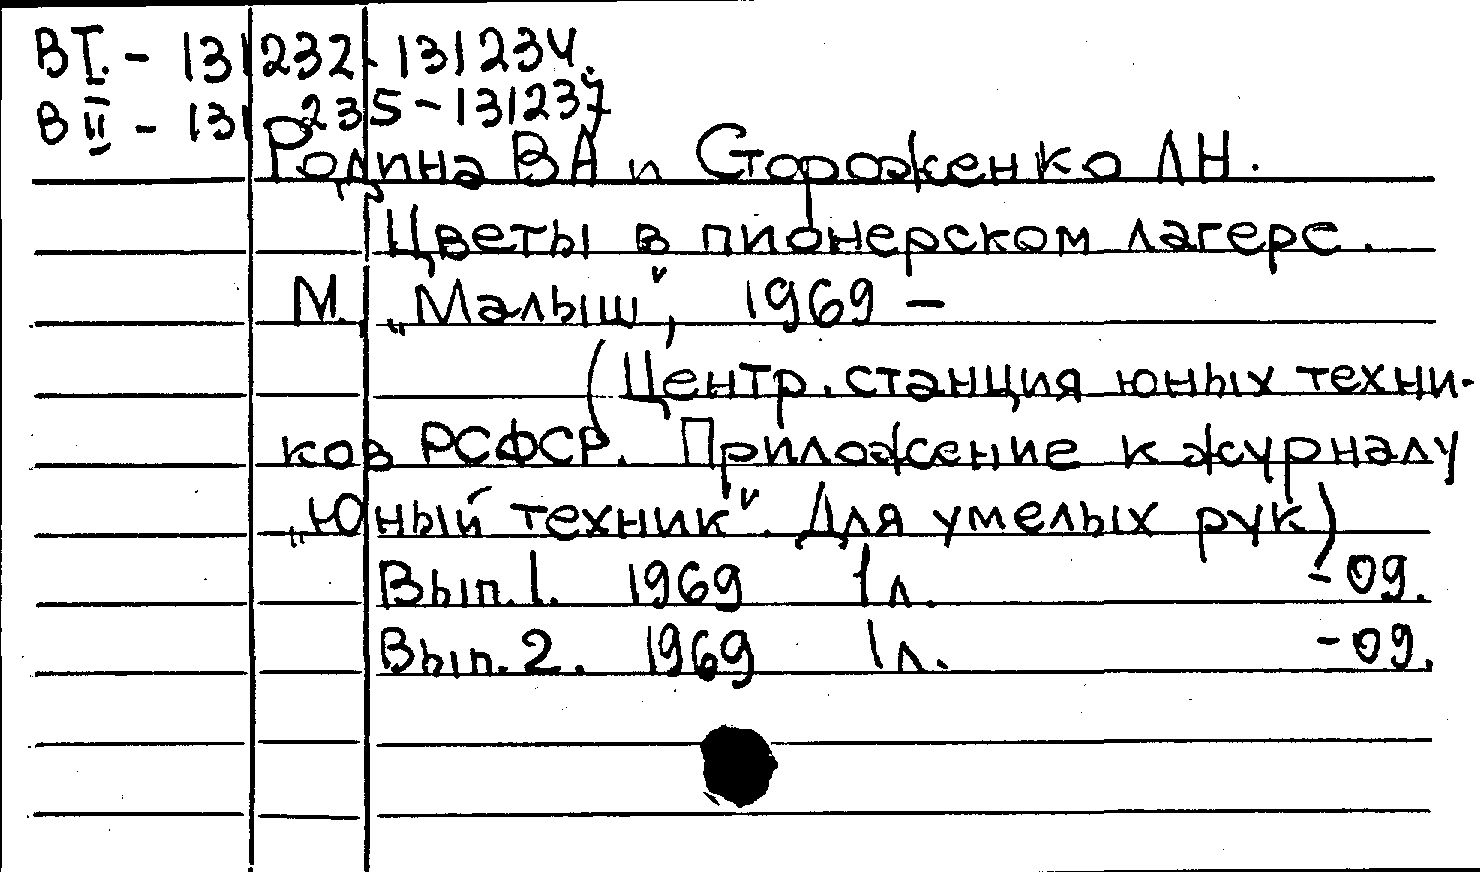 В I. - 131232 - 131234.
В II - 131235 - 131237
Родина ВА и Стороженко ЛН.
Цветы в пионерском лагере.
М., „Малыш“, 1969 -
(Центр. станция юных техни-
ков РСФСР. Приложение к журналу
„Юный техник“. Для умелых рук)
Вып. 1. 1969 1 л. - 09.
Вып. 2. 1969 1 л. - 09.